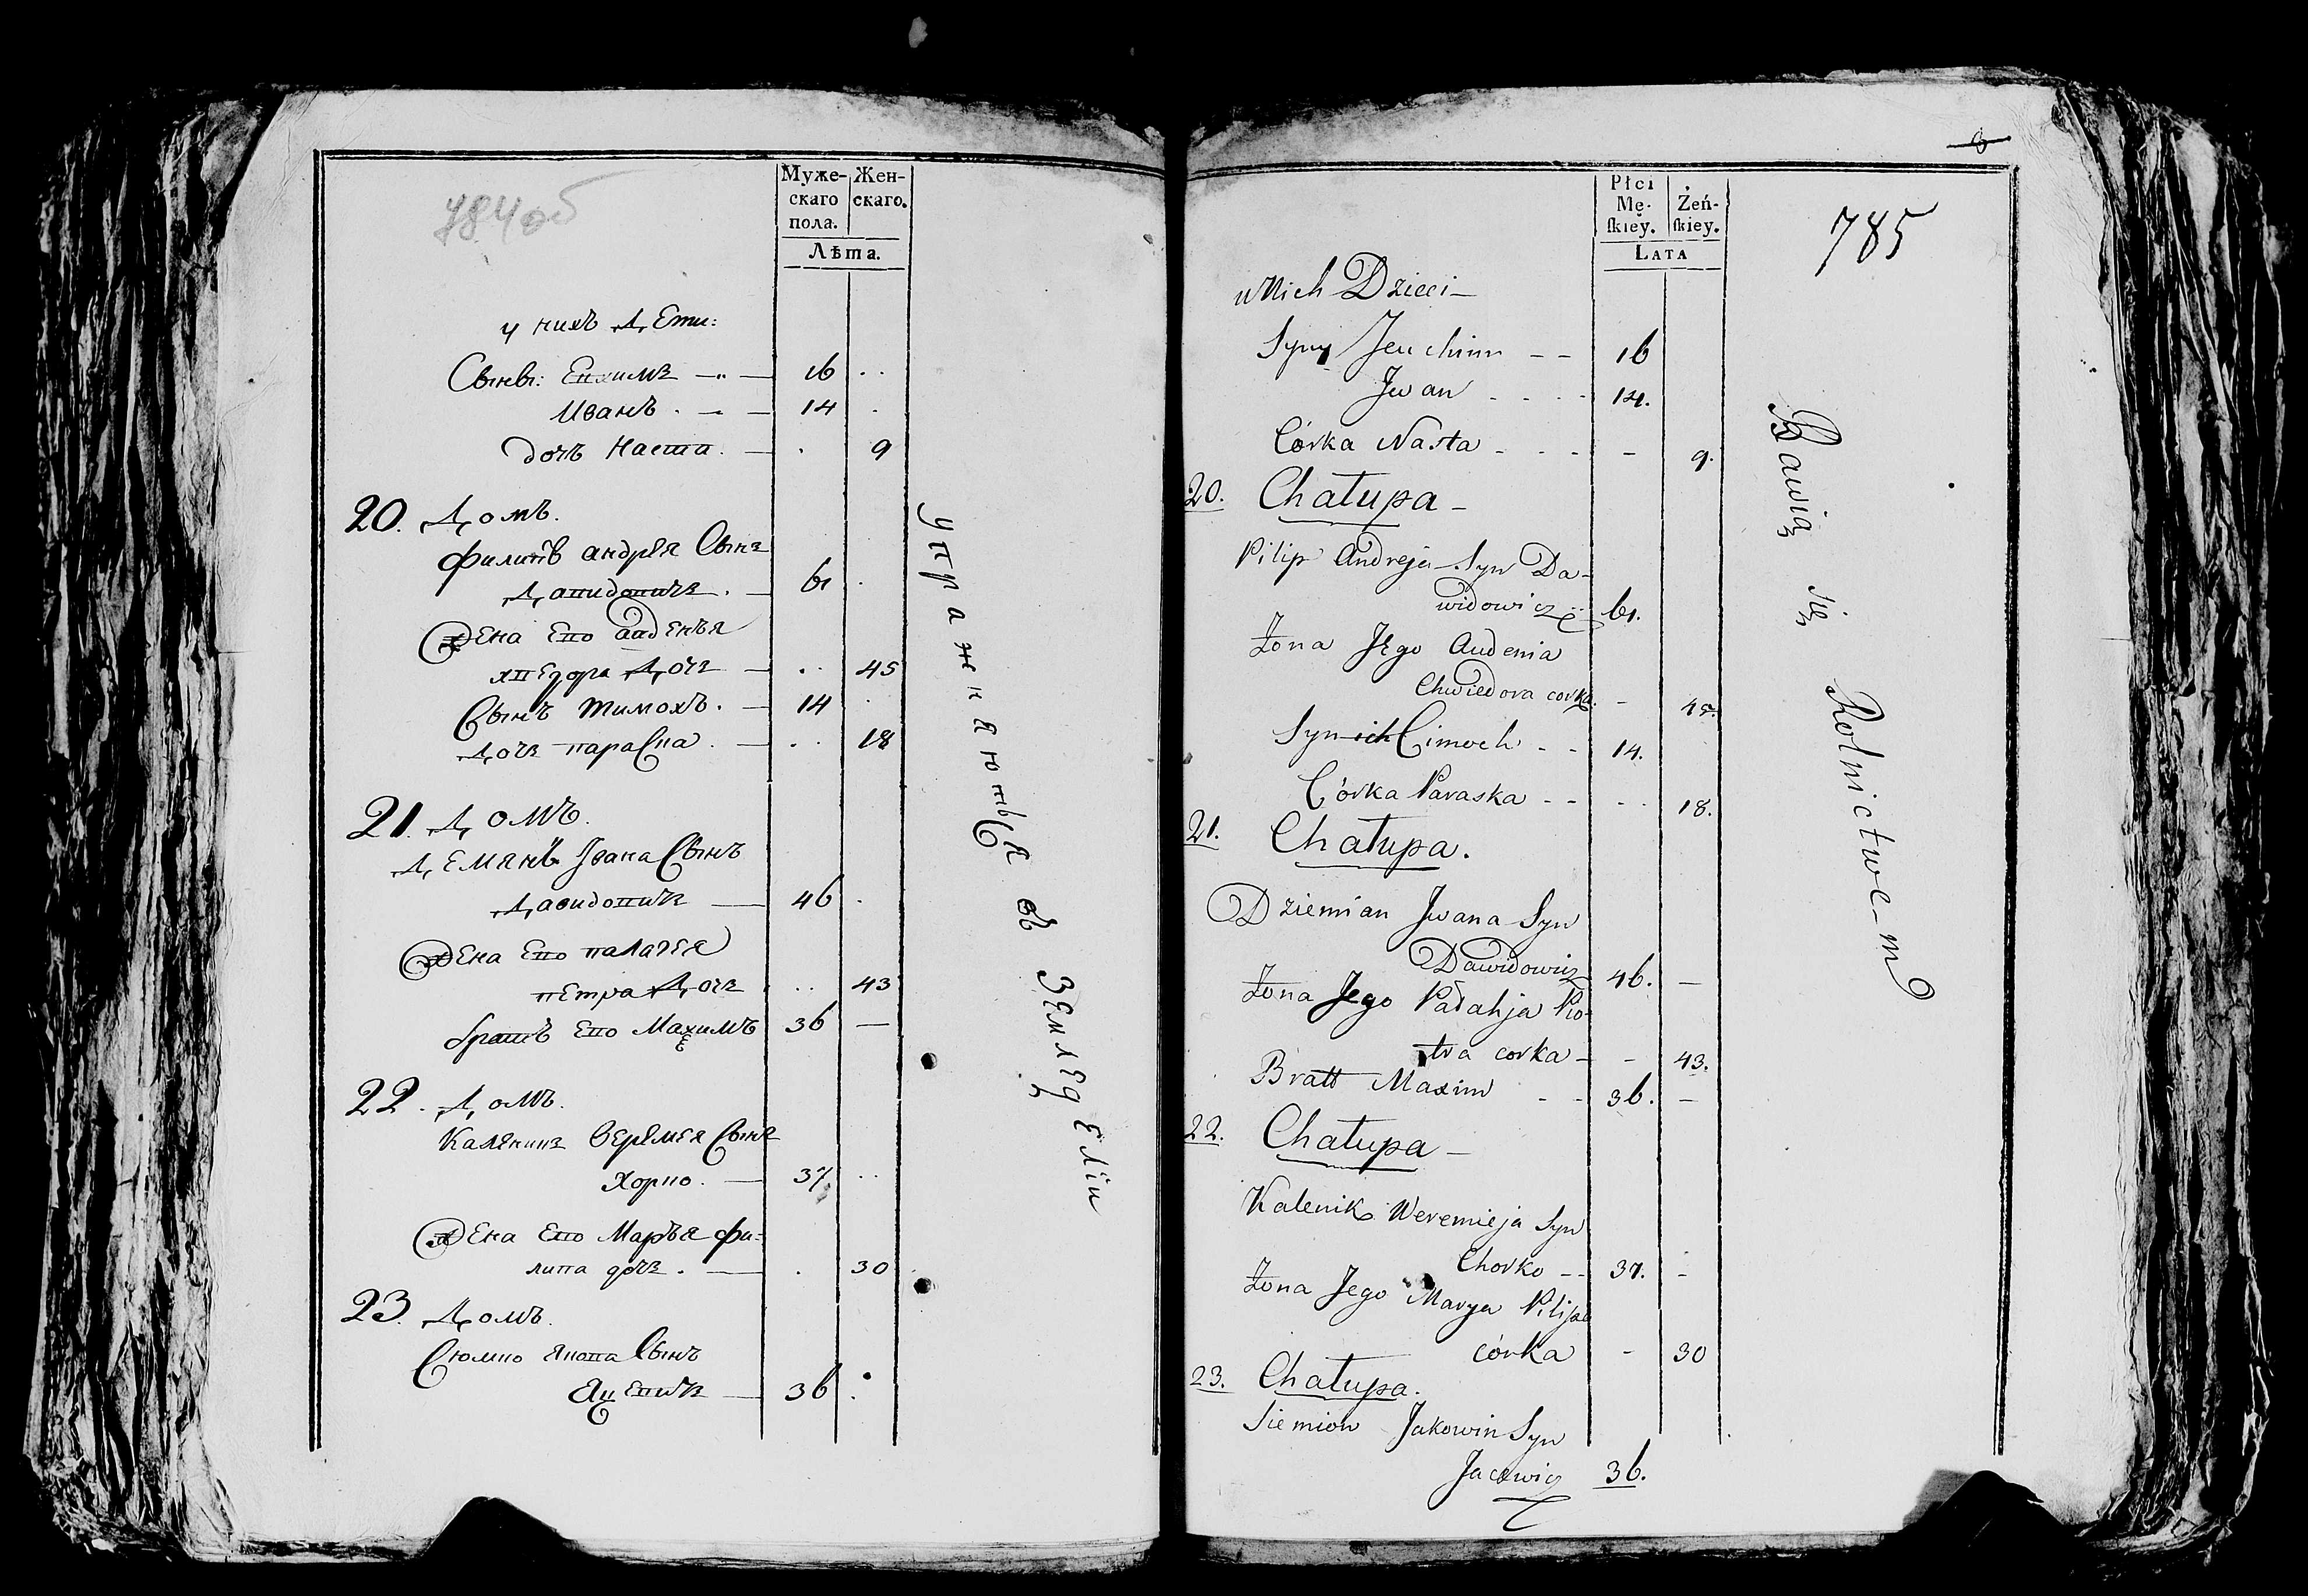 784об
Муже-
скаго
пола.
Жен-
скаго.
Лѣта.
у нихъ Дети:
Сыны: Евхимъ — 16
Иванъ . — 14
дочь Наста . — 9
20. Домъ.
Филипъ андрея Сынъ
Давидовичъ . — 61
Жена Его авденья
хведора Дочь — 45
Сынъ тимохъ . — 14
Дочь параска . — 18
21. Домъ.
Демянъ Івана Сынъ
Давидовичъ — 46
Жена Его палагея
петра Дочь 43
братъ Его Махимъ 36 —
22. Домъ.
Каленикъ Веремея Сынъ
Хорко . — 37
Жена Его Марья фи-
липа дочь . — 30
23. Домъ.
Сюмко Якова Сынъ
Яцевичъ — 36
упражняються въ земледелiи
785
Płci
Mę-
ſkiey.
Żeń-
ſkiey.
LATA
u Nich Dzieci —
Syny Jeuchim - - 16
Jwan - - - - 14.
Córka Nasta - - - - 9.
20. Chałupa —
Pilip Andreja Syn Da-
widowicz - 61.
Żona Jego Audenia
Chwiedora corka. - 45.
Syn ich Cimoch - - 14.
Córka Paraska - - - - 18.
21. Chałupa.
Dziemian Jwana Syn
Dawidowicz 46. —
Żona Jego Pałahja Pio-
tra corka — - 43.
Bratt Maxim - - 36. —
22. Chałupa —
Kalenik Weremieja Syn
Chorko - - 37. -
Żona Jego Marya Pilipa
córka - 30
23. Chałupa.
Siemion Jakowin Syn
Jacewicz 36.
Bawią się Rolnictwem